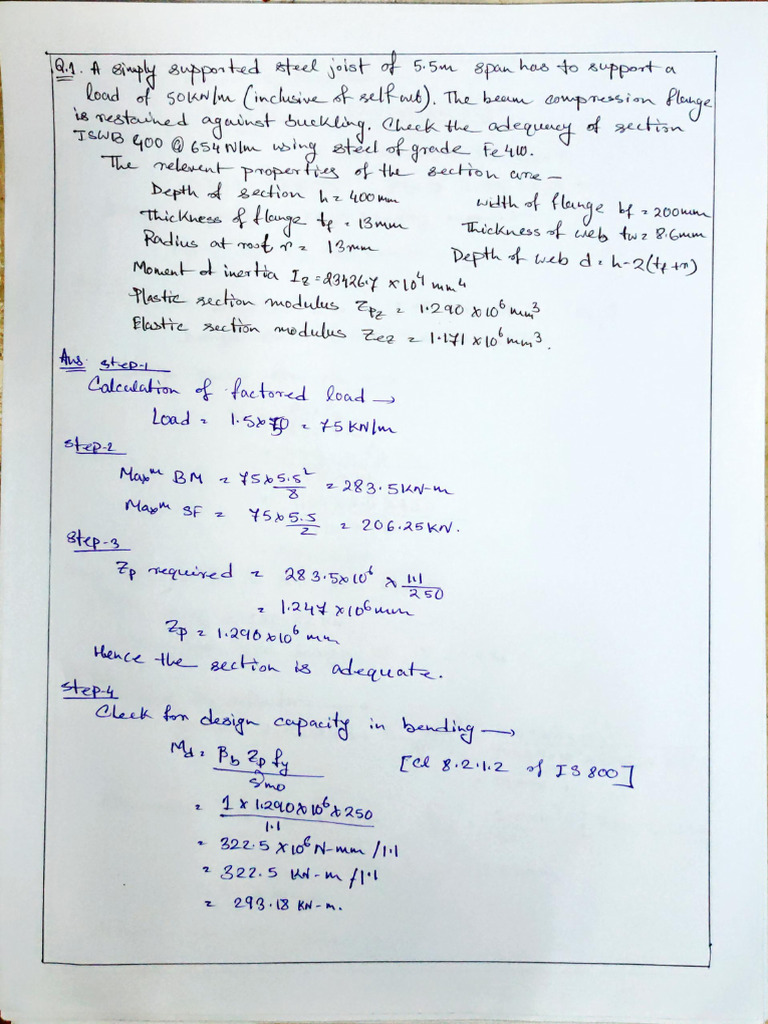 Q.1. A simply supported steel joist of 5.5m span has to support a
load of 50KN/m (inclusive of self wt). The beam compression flange
is restained against buckling. Check the adequacy of section
ISWB 400 @ 654 N/m using steel of grade Fe 410.
The relevent properties of the section are –
Depth of section h = 400mm
width of flange bf = 200mm
Thickness of flange tf = 13mm
Thickness of web tw = 8.6mm
Radius at root r = 13mm
Depth of web d = h-2(tf+r)
Moment of inertia Iz = 23426.7 × 10⁴ mm⁴
Plastic section modulus Zpz = 1.290 × 10⁶ mm³
Elastic section modulus Zez = 1.171 × 10⁶ mm³.
Ans: step-1
Calculation of factored load →
Load = 1.5 × 50 = 75 KN/m
step-2
Maxᵐ BM = 75 × 5.5²/8 = 283.5 KN-m
Maxᵐ SF = 75 × 5.5/2 = 206.25 KN.
step-3
Zp required = 283.5 × 10⁶ × 1.1/250
= 1.247 × 10⁶ mm
Zp = 1.290 × 10⁶ mm
Hence the section is adequate.
step-4
Check for design capacity in bending →
Md = βb Zp fy / γmo [Cl 8.2.1.2 of IS 800]
= 1 × 1.290 × 10⁶ × 250 / 1.1
= 322.5 × 10⁶ N-mm /1.1
= 322.5 KN-m /1.1
= 293.18 KN-m.